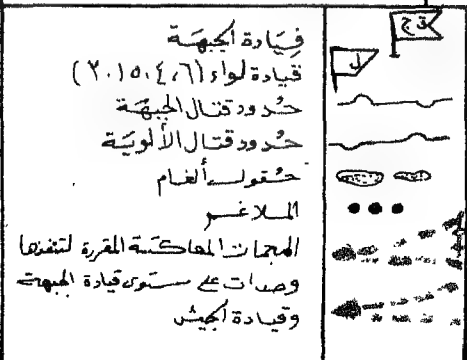 قيادة الجبهة
قيادة لواء (٦، ٤، ١٥، ٢٠)
حدود قتال الجبهة
حدود قتال الألوية
حقول ألغام
الملاغم
الهجمات المعاكسة المقررة لتنفذها
وحدات على مستوى قيادة الجبهة
وقيادة الجيش
ق ج
ل